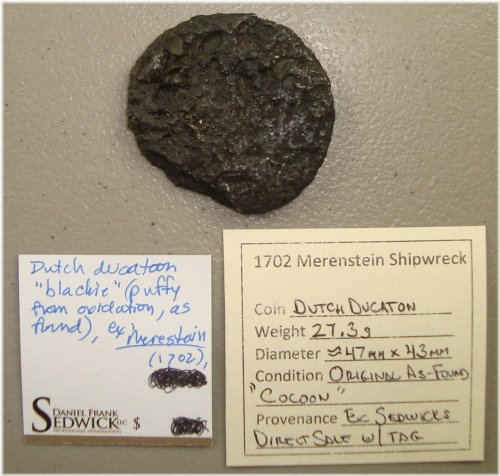 Dutch ducatoon
"blackie" (puffy
from oxidation, as
found), ex-
Merestein
(1702),
DANIEL FRANK
SEDWICK LLC $
PROFESSIONAL NUMISMATISTS
1702 Merenstein Shipwreck
Coin DUTCH DUCATON
Weight 27.3g
Diameter ≈47mm x 43mm
Condition ORIGINAL AS-FOUND
"COCOON"
Provenance EX SEDWICKS
DIRECT SALE W/ TAG